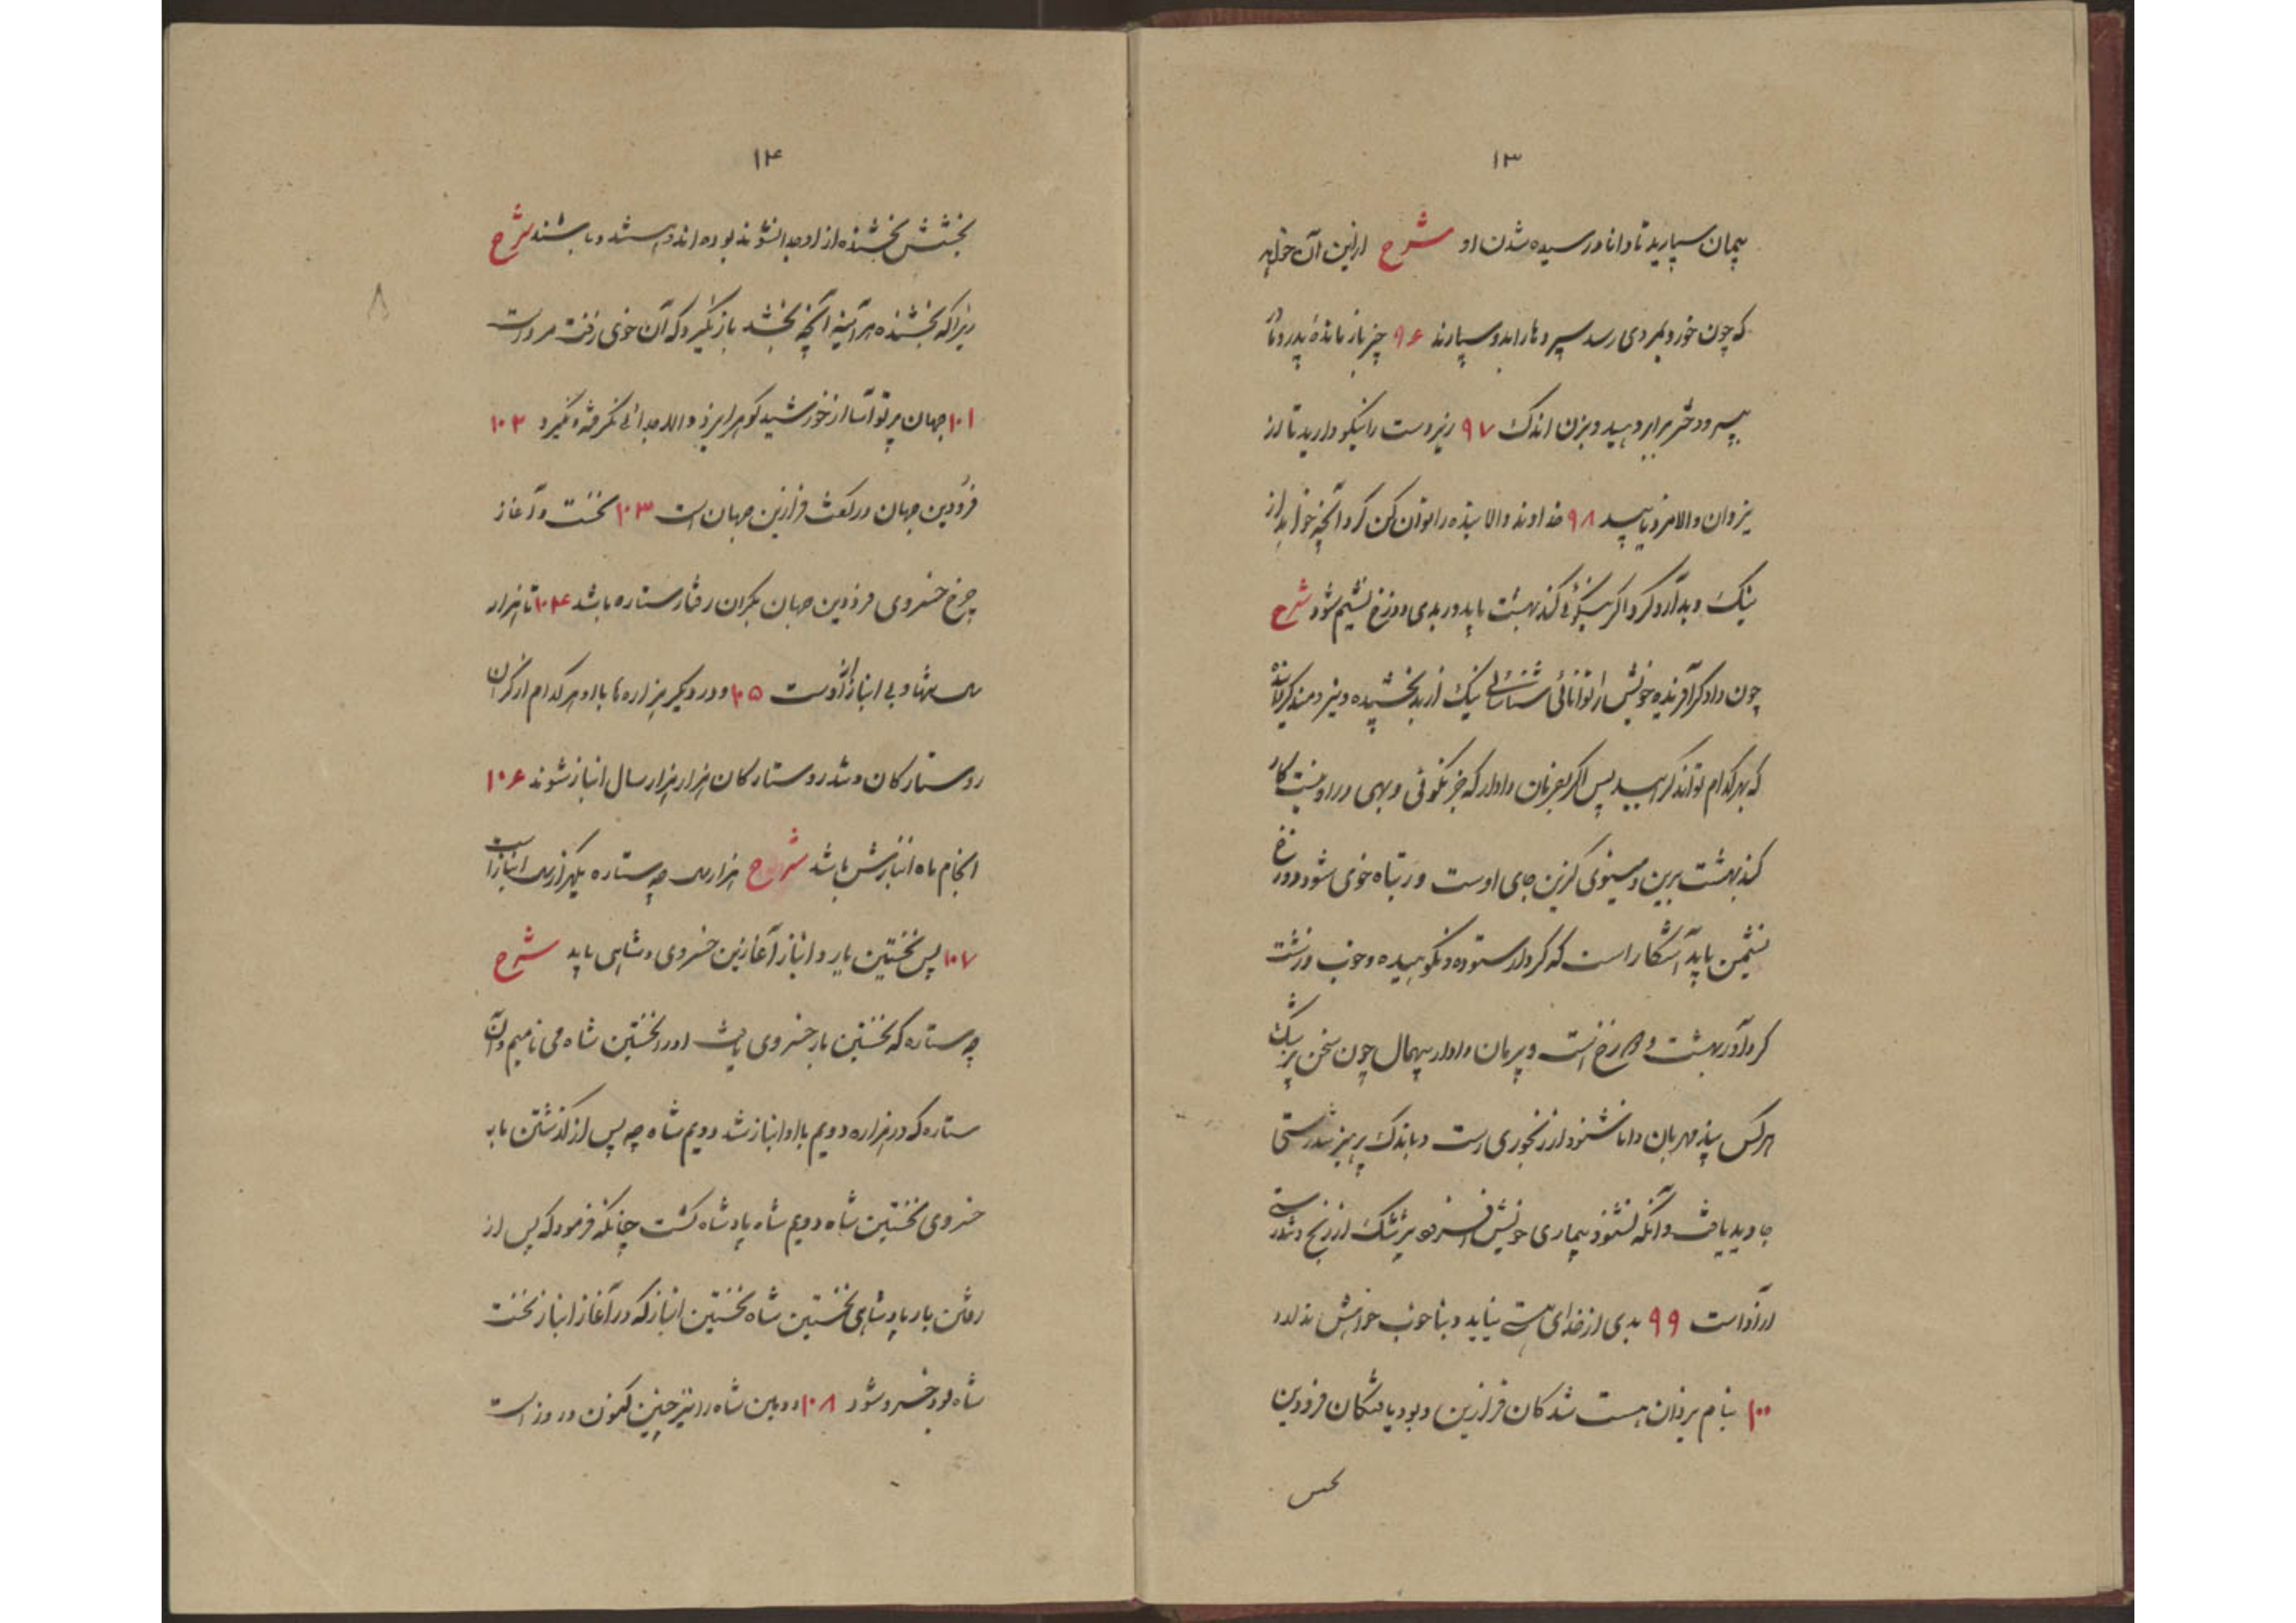 ۱۳
پیمان سپارید تا دانا در رسیده شدن او شرح ازین آن خواهد
که چون خورد بمردی رسد سپرده را بدو سپارند ۹۶ چیز باز مانده پدر و مادر
بپسر و دختر برابر دهید و بزن اندک ۹۷ زیردست را نیکو دارید تا از
یزدان والا مزد یابید ۹۸ خداوند والا بنده را توان کن کرد آنچه خواهد از
نیک و بد آرد کرد اگر نیکوئی کند بهشت یابد و ر بدی دوزخ نشیم شود شرح
چون دادگر آفریننده خویش را توانائی شناسائی نیک از بد بخشیده و نیرومند گردانیده
که بهر کدام تواند گرایید پس اگر بفرمان دادار که جز نکوئی و بهی در او نیست کار
کند بهشت برین و مینوی گزین جای اوست ور تباه خوی شود دوزخ
نشیمن یابد آشکار است که کردار ستوده و نکوهیده و خوب و زشت
کردآور بهشت و دوزخ است و پرمان دادار بیهمال چون سخن پزشک
هرکس پند مهربان دانا شنود از رنجوری رست و باندک پرهیز تندرستی
جاوید یافت و آنکه نشنود بیماری خویش افزود پزشک از رنج و تندرستی
او آزاد است ۹۹ بدی از خدای هستی نیاید و بناخوب خواهش ندارد
۱۰۰ بنام یزدان هست شدگان فرازین و بود یافتگان فرودین
بخشش
۱۴
بخشش بخشنده از او جدا نشوند بوده اند و هستند و باشند شرح
زیرا که بخشنده هر آینه آنچه بخشد باز نگیرد که آن خوی زفت مرد است
۱۰۱ جهان پرتو آسا از خورشید گوهر ایزد والا جدائی نگرفته و نگیرد ۱۰۲
فرودین جهان در کفت فرازین جهان است ۱۰۳ نخست و آغاز
چرخ خسروی فرودین جهان بکران رفتار ستاره باشد ۱۰۴ تا هزار
سال تنها و بی انباز او راست ۱۰۵ و در دیگر هزاره ها با او هر کدام از گران
رو ستارگان و تند رو ستارگان هزار هزار سال انباز شوند ۱۰۶
انجام ماه انبازش باشد شرح هزار سال چه ستاره یکهزار سال انباز است
۱۰۷ پس نخستین یار و انباز آغازین خسروی و شاهی یابد شرح
چه ستاره که نخستین بار خسروی یافت او را نخستین شاه می نامیم و آن
ستاره که در هزاره دویم با او انباز شد دویم شاه چه پس از گذشتن بار
خسروی نخستین شاه دویم شاه پادشاه گشت چنانکه فرمود که پس از
رفتن بار پادشاهی نخستین شاه نخستین انباز که در آغاز انباز نخست
شاه بود خسرو شود ۱۰۸ دومین شاه را نیز چنین کمون در روز است
۸